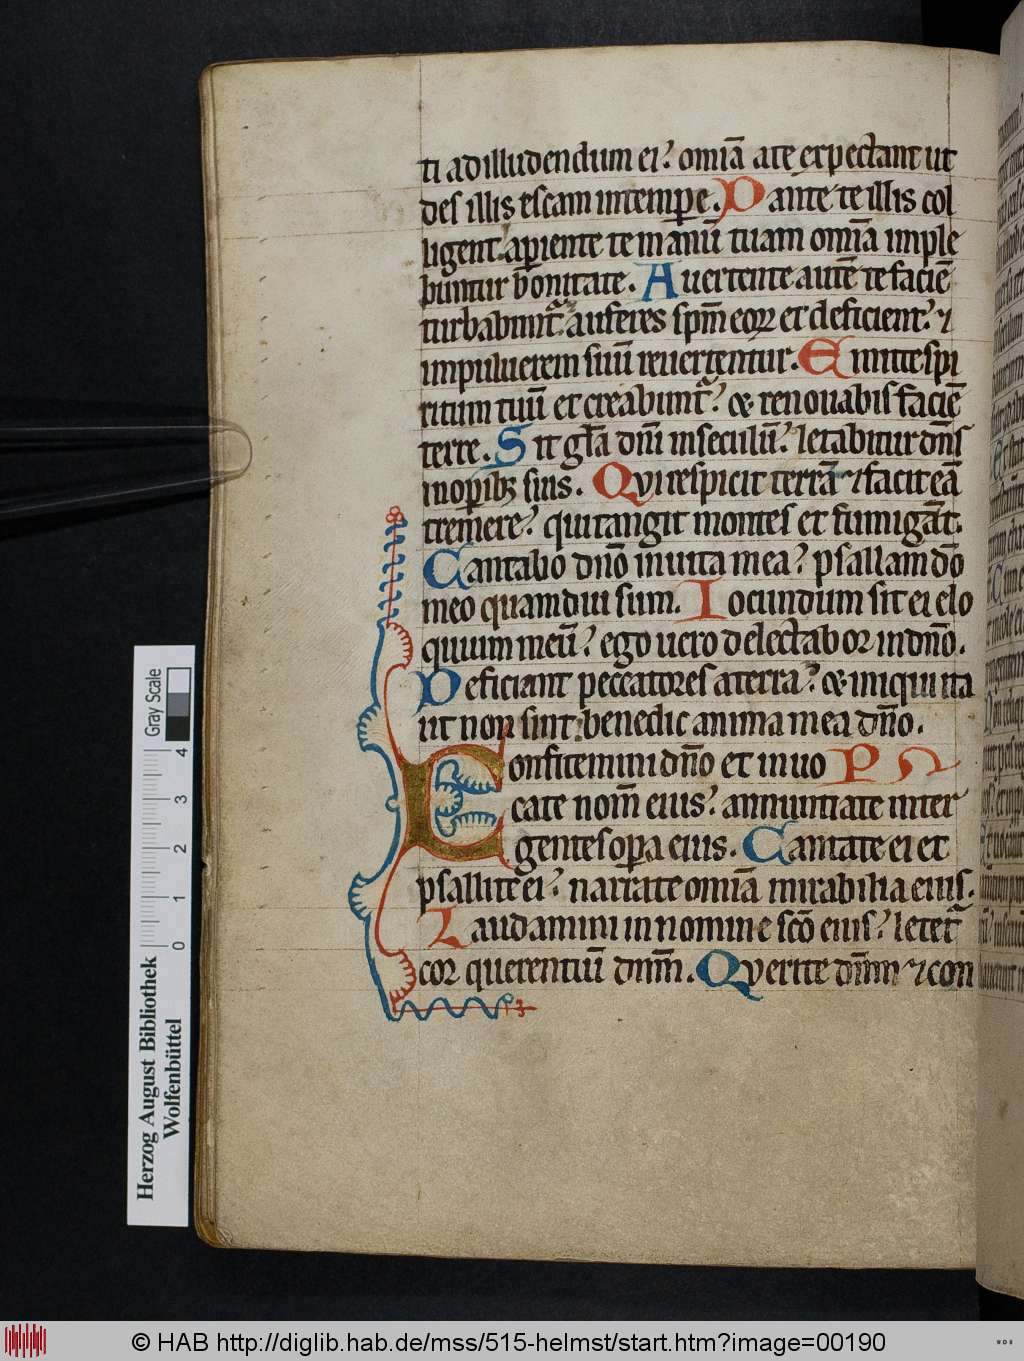 ti ad illudendum ei? omīa a te expectant ut
des illis escam in temp̱e. Dante te illis col
ligent. apiente te manū tuam omīa imple
buntur bonitate. Auertente autē te faciē
turbabunt᷑. auferes sp̄m eoꝝ et deficient? ⁊
in puluerem suū reuertentur. Emitte spi
ritum tuū et creabunt᷑? & renouabis faciē
terre. Sit gl̄a dn̄i in seculū? letabitur dn̄s
in operibꝫ suis. Qui respicit terrā ⁊ facit eā
tremere? qui tangit montes et fumigāt.
Cantabo dn̄o in uita mea? psallam dō
meo quamdiu sum. Iocundum sit ei elo
quium meū? ego uero delectabor in dn̄o.
Deficiant peccatores a terra? & iniqui ita
ut non sint. benedic anima mea dn̄o.
Confitemini dn̄o et inuo
cate nom̄ eius? annuntiate inter
gentes opa eius. Cantate ei et
psallite ei? narrate omīa mirabilia eius.
Laudamini in nomine scō eius? letet᷑
cor querentiū dn̄m. Querite dn̄m ⁊ con
Herzog August Bibliothek
Wolfenbüttel
Gray Scale
0 1 2 3 4
© HAB http://diglib.hab.de/mss/515-helmst/start.htm?image=00190